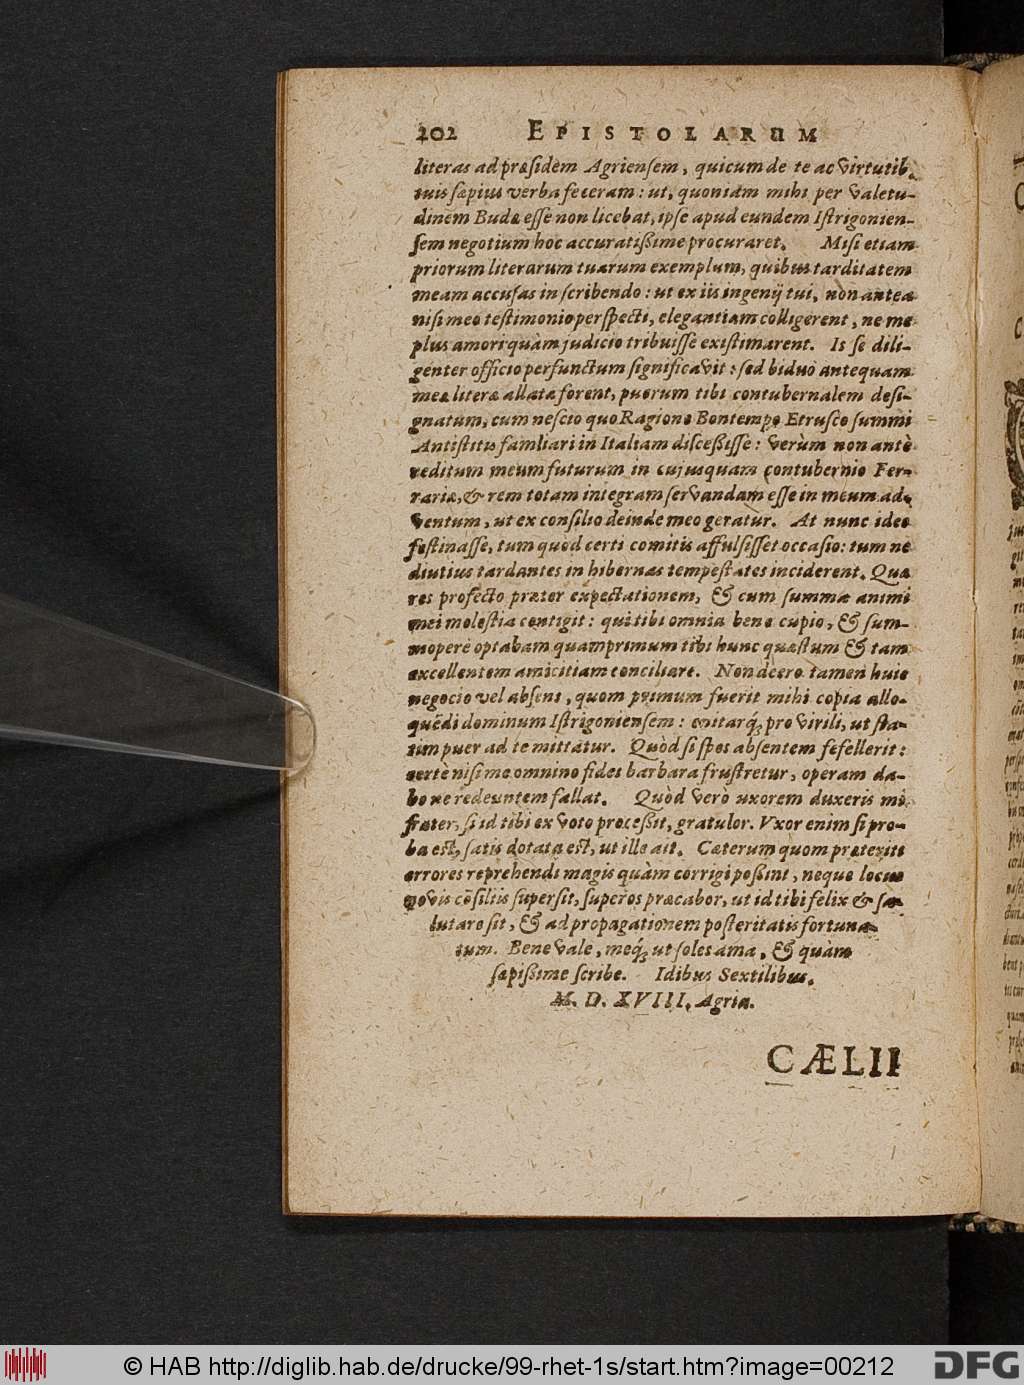 202 EPISTOLARUM
literas ad præsidem Agriensem, quicum de te ac virtutib.
tuis sæpius verba feceram: ut, quoniam mihi per valetu-
dinem Budæ esse non licebat, ipse apud eundem Istrigonien-
sem negotium hoc accuratißime procuraret. Misi etiam
priorum literarum tuarum exemplum, quibus tarditatem
meam accusas in scribendo: ut ex iis ingenij tui, non antea
nisi meo testimonio perspecti, elegantiam colligerent, ne me
plus amori quàm judicio tribuisse existimarent. Is se dili-
genter officio perfunctum significavit: sed biduò antequam
meæ literæ allatæ forent, puerum tibi contubernalem desi-
gnatum, cum nescio quo Ragione Bontempo Etrusco summi
Antistitis familiari in Italiam disceßisse: verùm non antè
reditum meum futurum in cujusquam contubernio Fer-
rariæ, & rem totam integram servandam esse in meum ad-
ventum, ut ex consilio deinde meo geratur. At nunc ideo
festinasse, tum quod certi comitis affulsisset occasio: tum ne
diutius tardantes in hibernas tempestates inciderent. Quæ
res profecto præter expectationem, & cum summa animi
mei molestia contigit: qui tibi omnia bene cupio, & sum-
mopere optabam quamprimum tibi hunc quæstum & tam
excellentem amicitiam conciliare. Non deero tamen huic
negocio vel absens, quom primum fuerit mihi copia allo-
quēdi dominum Istrigoniensem: enitarq́; pro virili, ut sta-
tim puer ad te mittatur. Quòd si spes absentem fefellerit:
certè nisi me omnino fides barbara frustretur, operam da-
bo ne redeuntem fallat. Quòd verò uxorem duxeris mi
frater, si id tibi ex voto proceßit, gratulor. Vxor enim si pro-
ba est, satis dotata est, ut ille ait. Cæterum quom præteriti
errores reprehendi magis quàm corrigi poßint, neque locus
novis cōsiliis supersit, superos præcabor, ut id tibi felix & sa-
lutare sit, & ad propagationem posteritatis fortuna-
tum. Bene vale, meq́; ut soles ama, & quàm
sæpißime scribe. Idibus Sextilibus.
M. D. XVIII. Agriæ.
CÆLII
© HAB http://diglib.hab.de/drucke/99-rhet-1s/start.htm?image=00212
DFG